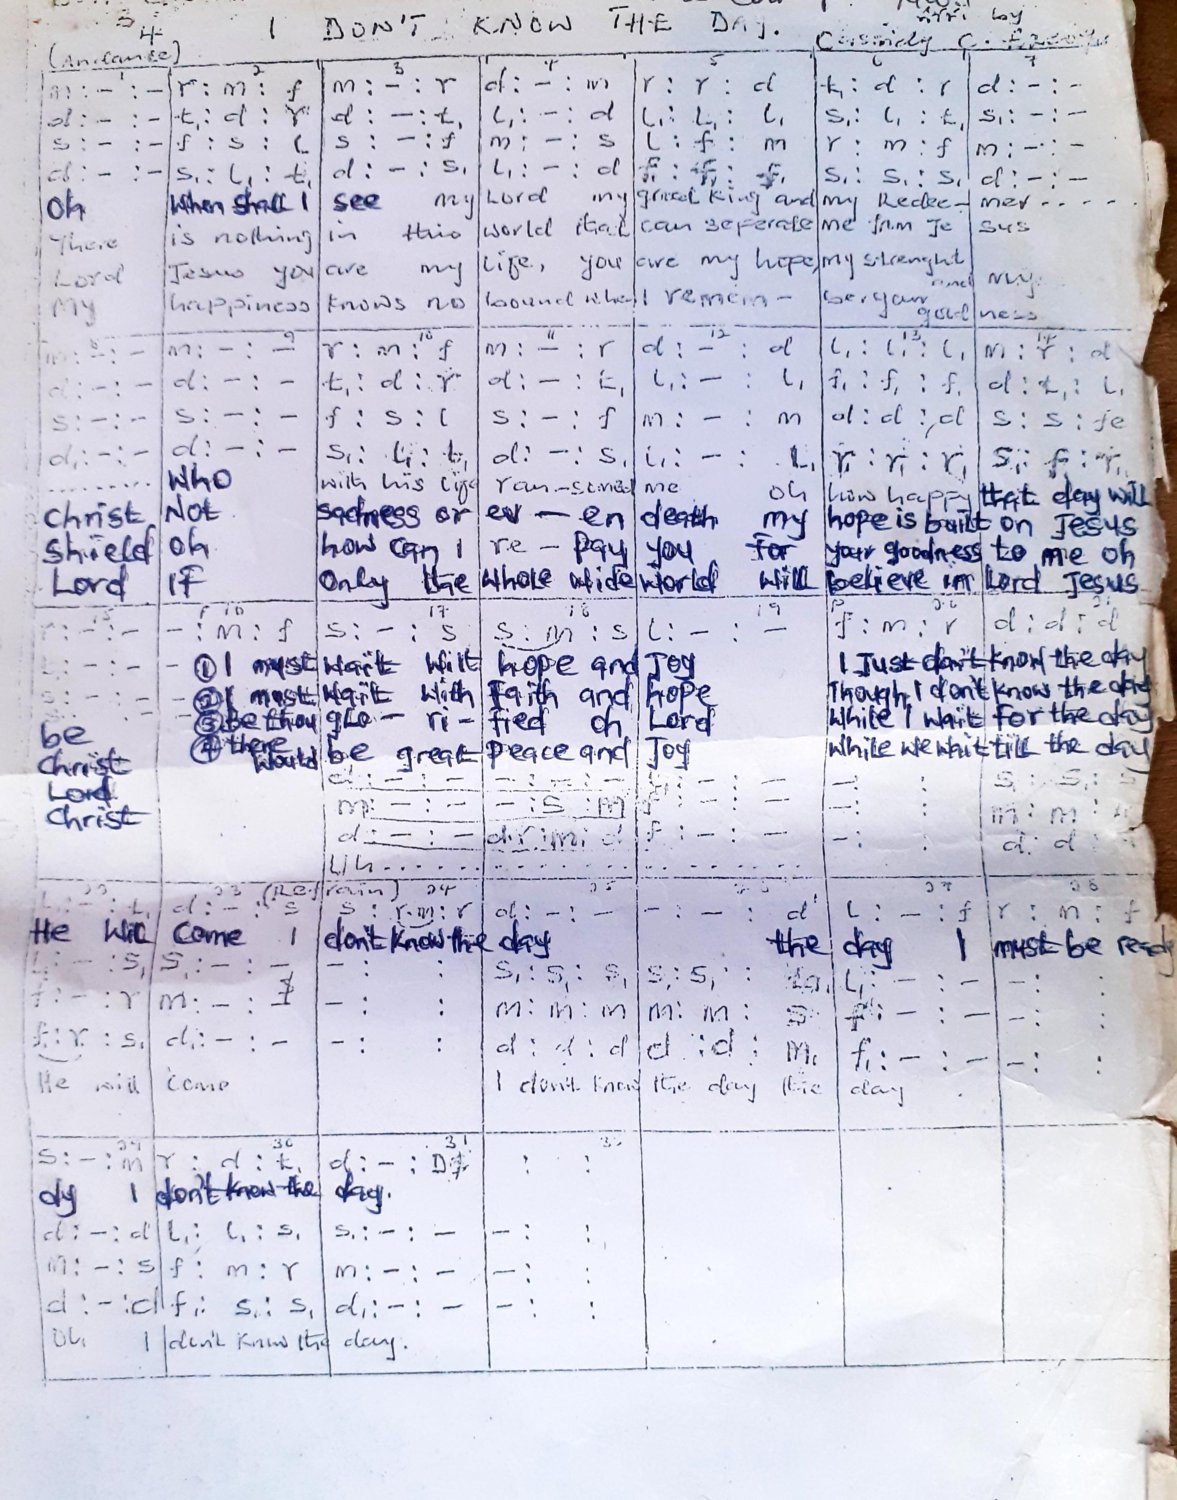 3
4
I DON'T KNOW THE DAY.
by
(Andante)
Cassidy C.
1 2 3 4 5 6 7
m : - : - | r : m : f | m : - : r | d : - : m | r : r : d | t₁ : d : r | d : - : -
d : - : - | t₁ : d : r | d : - : t₁ | l₁ : - : d | l₁ : l₁ : l₁ | s₁ : l₁ : t₁ | s₁ : - : -
s : - : - | f : s : l | s : - : f | m : - : s | l : f : m | r : m : f | m : - : -
d : - : - | s₁ : l₁ : t₁ | d : - : s₁ | l₁ : - : d | f₁ : f₁ : f₁ | s₁ : s₁ : s₁ | d : - : -
Oh when shall I see my Lord my great King and my Redee- mer .....
There is nothing in this world that can seperate me from Je sus
Lord Jesus you are my life, you are my hope, my strenght and my
My happiness knows no bound when I remem- ber your good ness
8 9 10 11 12 13 14
m : - : - | m : - : - | r : m : f | m : - : r | d : - : d | l₁ : l₁ : l₁ | m : r : d
d : - : - | d : - : - | t₁ : d : r | d : - : t₁ | l₁ : - : l₁ | f₁ : f₁ : f₁ | d : t₁ : l₁
s : - : - | s : - : - | f : s : l | s : - : f | m : - : m | d : d : d | s : s : fe
d₁ : - : - | d : - : - | s₁ : l₁ : t₁ | d : - : s₁ | l₁ : - : l₁ | r₁ : r₁ : r₁ | s₁ : f₁ : r₁
........ Who with his life ran-somed me oh how happy that day will
Christ Not sadness or ev - en death my hope is built on Jesus
Shield Oh how can I re - pay you for your goodness to me oh
Lord If Only the whole wide world will believe in Lord Jesus
15 16 17 18 19 20 21
r : - : - | - : m : f | s : - : s | s : m : s | l : - : - | f : m : r | d : d : d
① I must wait wilt hope and Joy I Just don't know the day
② I must wait with Faith and hope Though I don't know the day
③ be thou glo - ri - fied oh Lord While I wait for the day
be ④ there would be great peace and Joy While we wait till the day
Christ
Lord
Christ
m : - : - | - : s : m | f : - : -
d : - : - | d : r : m : d | f : - : -
Uh .........
22 23 (Refrain) 24 25 26 27 28
l₁ : - : t₁ | d : - : s | s : r . m : r | d : - : - | - : d' | l : - : f | r : m : f
He will come I don't know the day the day I must be ready
l₁ : - : s₁ | s₁ : - : - | - : : | s₁ : s₁ : s₁ | s₁ : s₁ : | l₁ : - : - | - : :
f : - : r | m : - : | - : : | m : m : m | m : m : s | f : - : - | - : :
f₁ : r₁ : s₁ | d₁ : - : - | - : : | d : d : d | d : d : m₁ | f₁ : - : - | - : :
He will come I don't know the day the day
29 30 31 32
s : - : m | r : d : t₁ | d : - :
dy I don't know the day.
d : - : d | l₁ : l₁ : s₁ | s₁ : - : - | - : :
m : - : s | f : m : r | m : - : - | - : :
d : - : d | f₁ : s₁ : s₁ | d₁ : - : - | - : :
Oh I don't know the day.